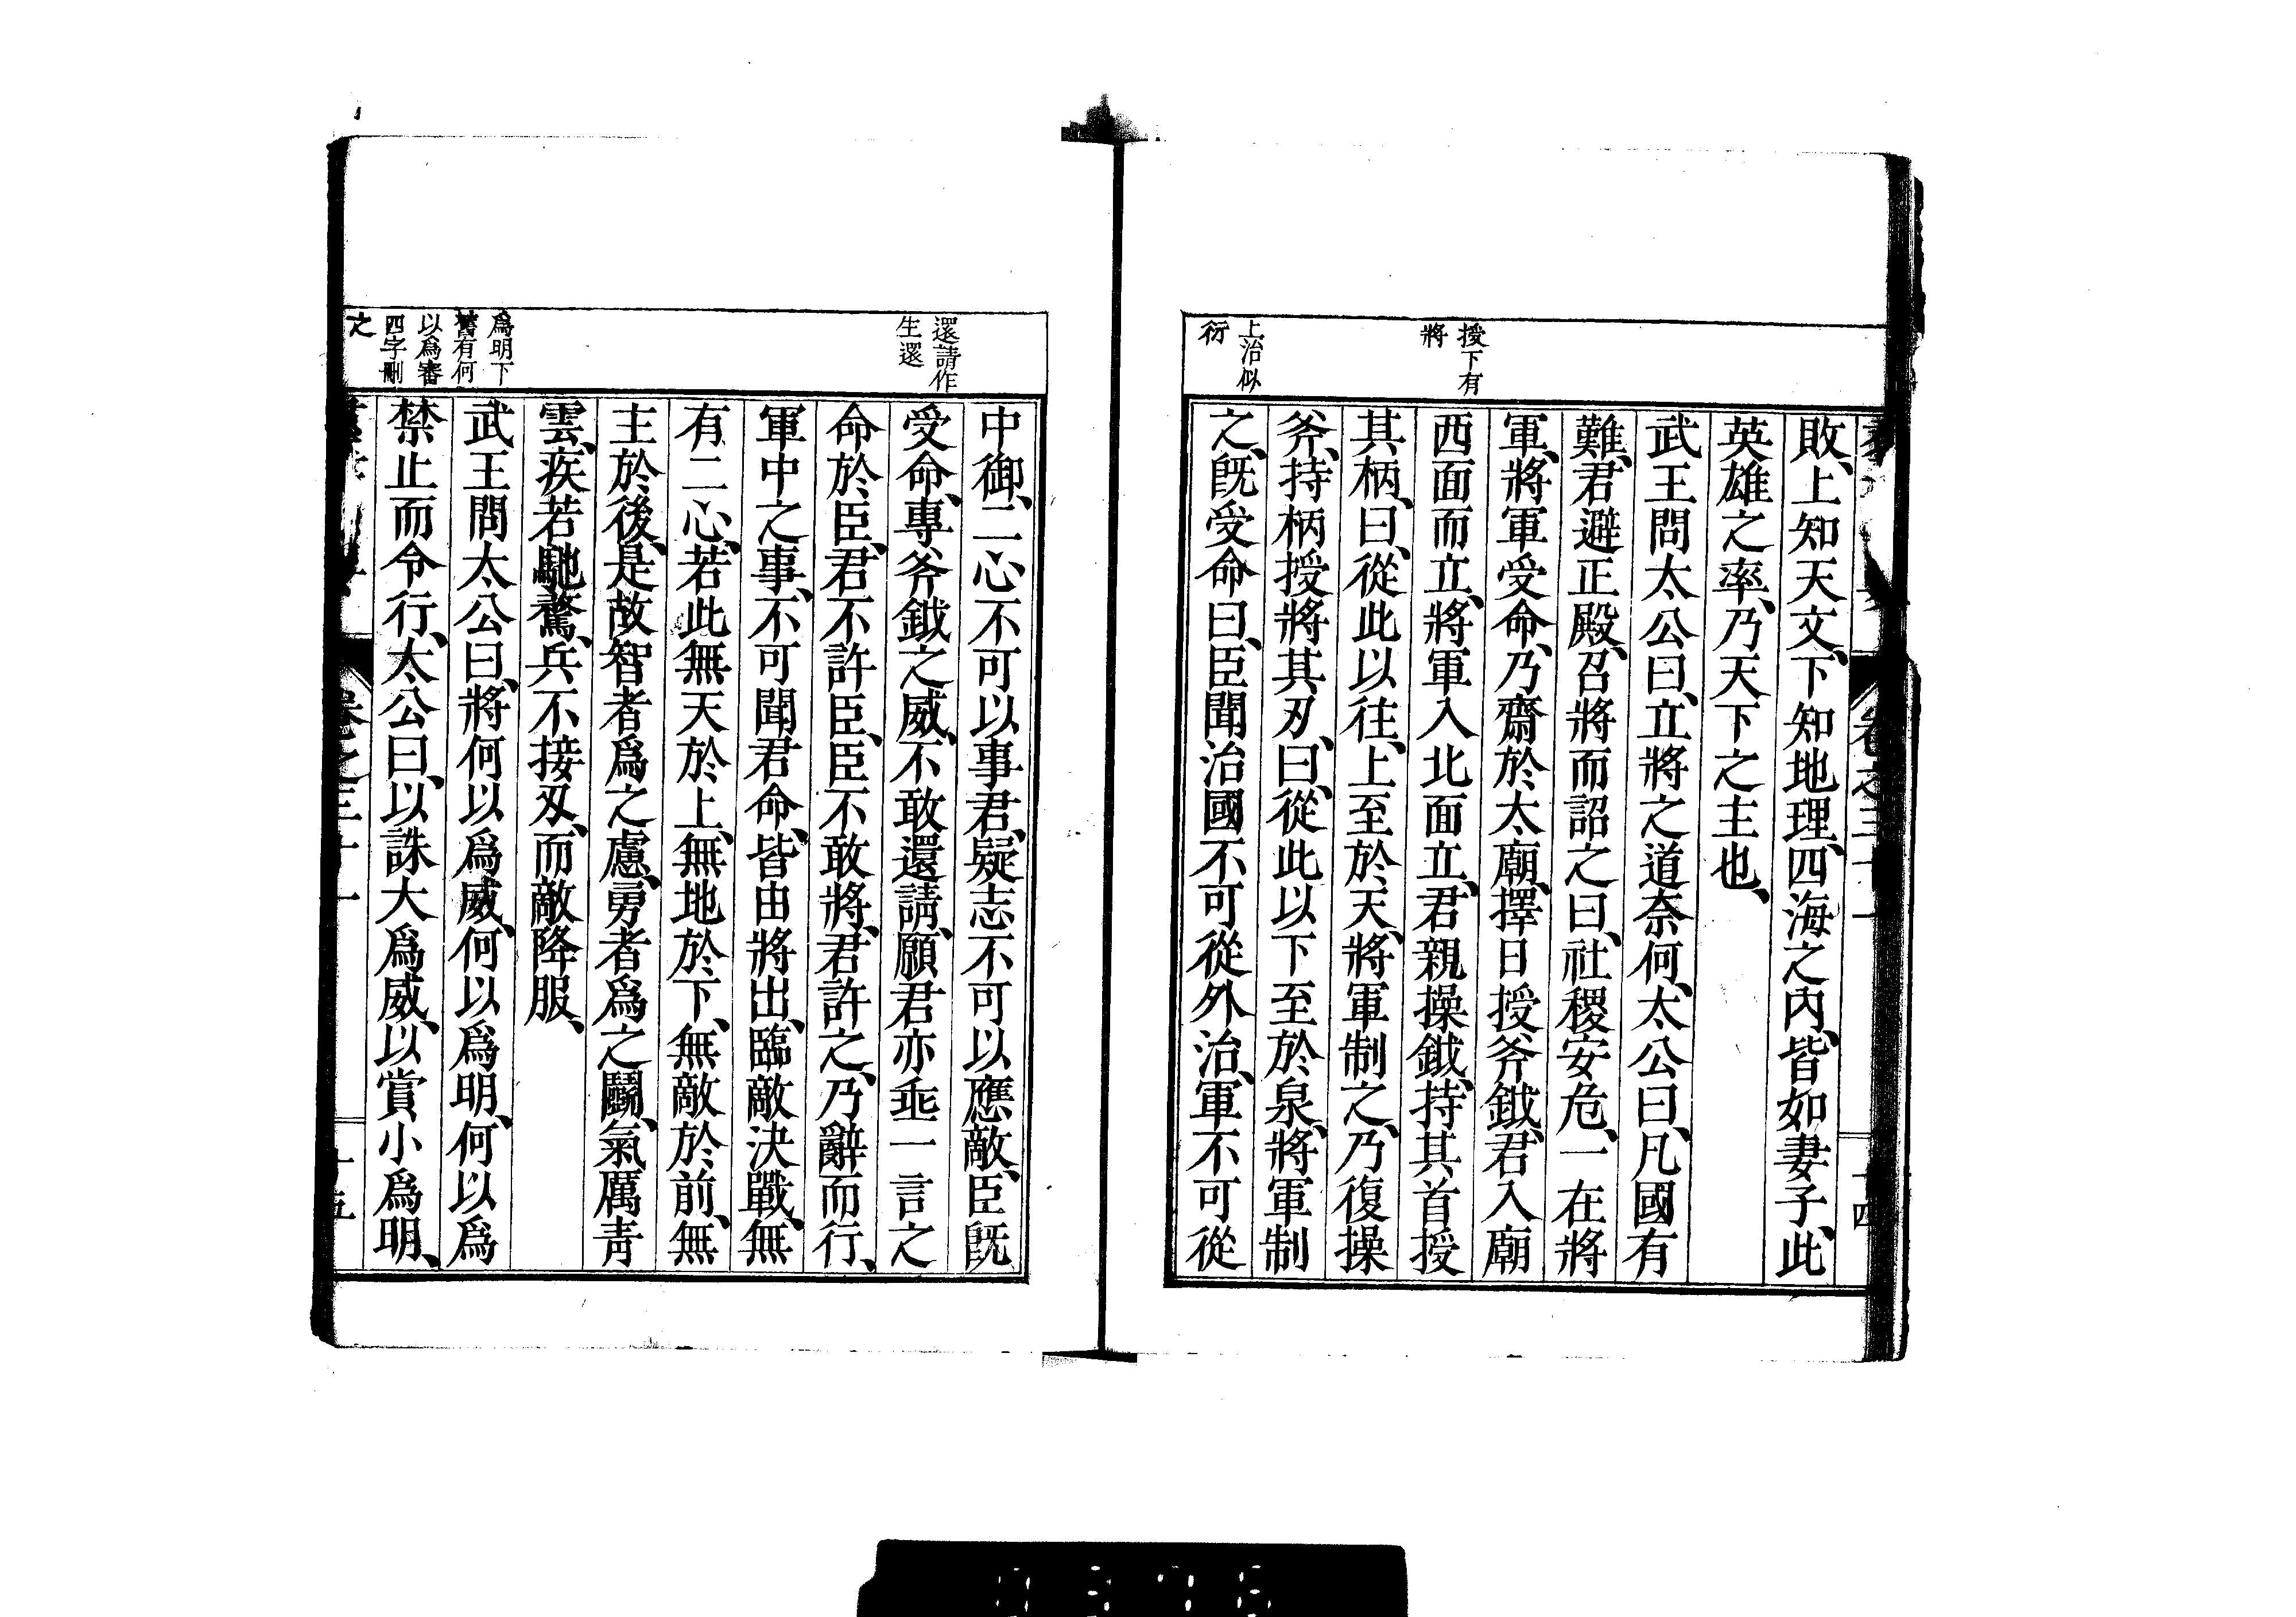 授下有
將
上治似
衍
敗、上知天文、下知地理、四海之內、皆如妻子、此
英雄之率、乃天下之主也、
武王問太公曰、立將之道奈何、太公曰、凡國有
難、君避正殿、召將而詔之曰、社稷安危、一在將
軍、將軍受命、乃齋於太廟、擇日授斧鉞、君入廟
西面而立、將軍入北面立、君親操鉞、持其首授
其柄、曰、從此以往、上至於天、將軍制之、乃復操
斧、持柄授將其刃、曰、從此以下至於泉、將軍制
之、既受命曰、臣聞治國不可從外治、軍不可從
十四
還請作
生還
爲明下
舊有何
以爲審
四字刪
之
中御、二心不可以事君、疑志不可以應敵、臣既
受命、專斧鉞之威、不敢還請、願君亦垂一言之
命於臣、君不許臣、臣不敢將、君許之、乃辭而行、
軍中之事、不可聞君命、皆由將出、臨敵決戰、無
有二心、若此無天於上、無地於下、無敵於前、無
主於後、是故智者爲之慮、勇者爲之鬭、氣厲青
雲、疾若馳騖、兵不接刃、而敵降服、
武王問太公曰、將何以爲威、何以爲明、何以爲
禁止而令行、太公曰、以誅大爲威、以賞小爲明、
卷之三十一
十五